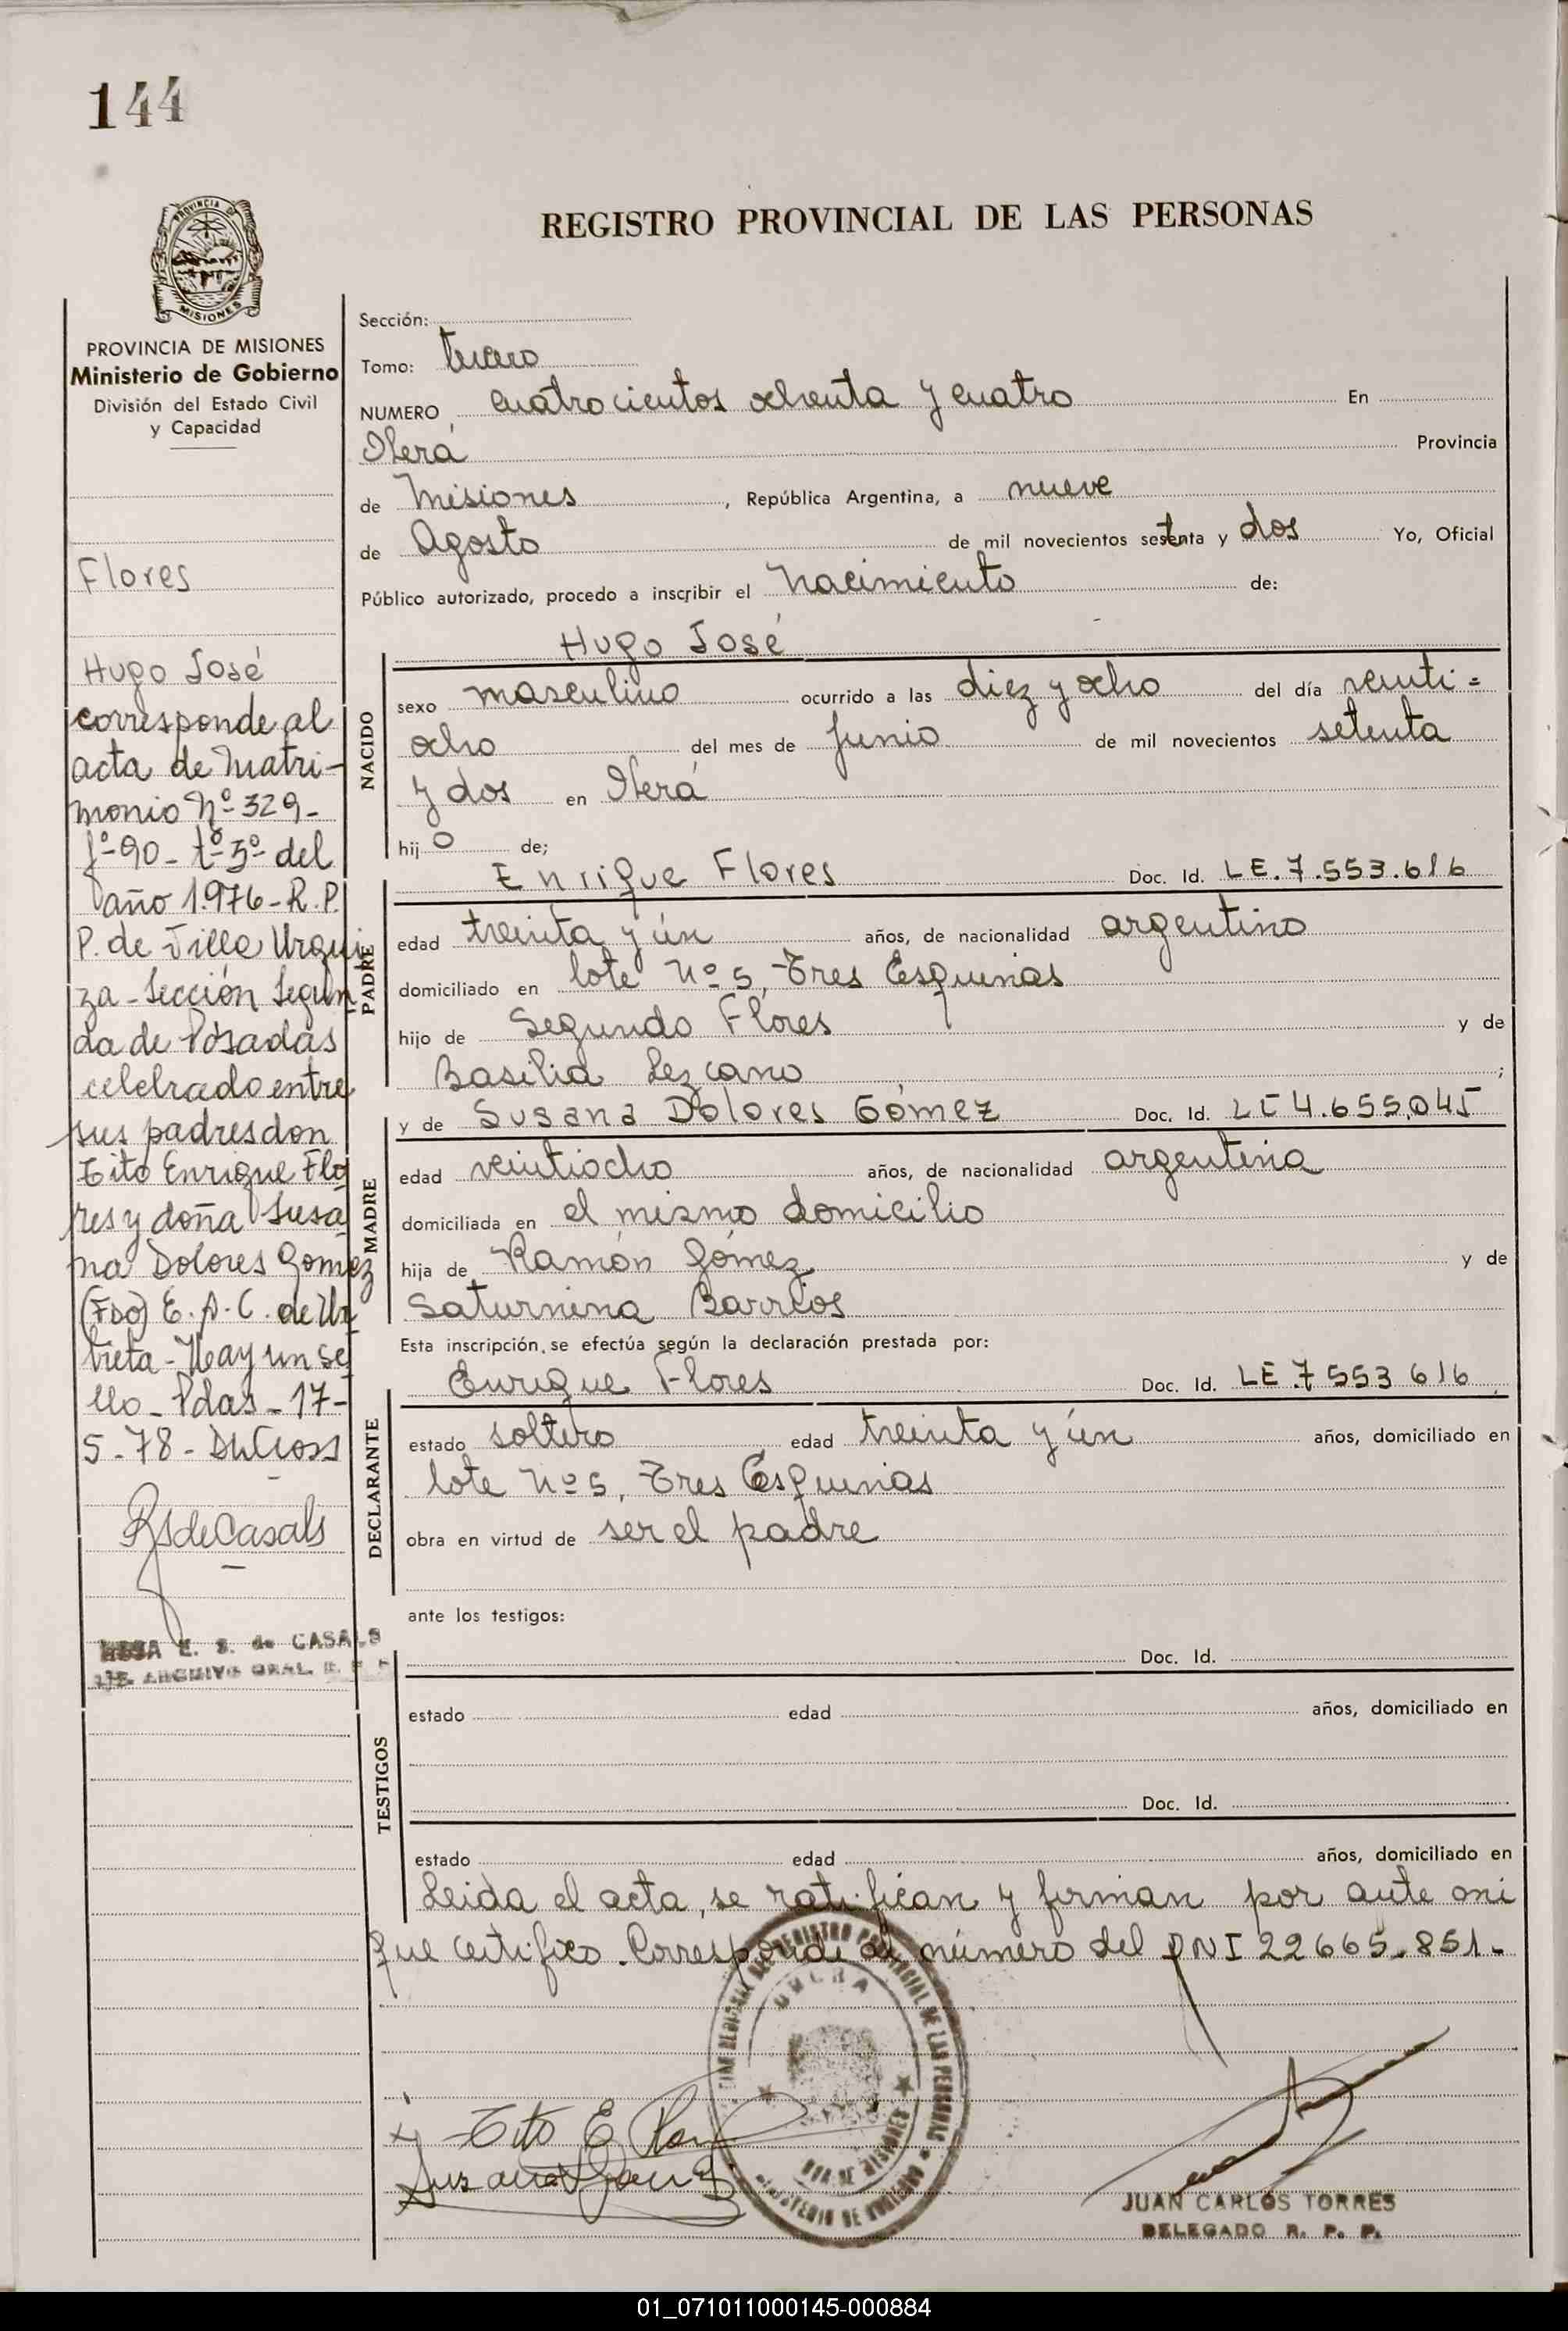 144
PROVINCIA DE
MISIONES
REGISTRO PROVINCIAL DE LAS PERSONAS
PROVINCIA DE MISIONES
Ministerio de Gobierno
División del Estado Civil
y Capacidad
Flores
Hugo José
corresponde al
acta de Matri-
monio Nº 329-
fº-90- tº 5º del
año 1.976- R. P.
P. de Villa Urqui
za - Sección Segun
da de Posadas
celebrado entre
sus padres don
Tito Enrique Flo
res y doña Susa
na Dolores Gomez
(FDO) E. A. C. de Ur
bieta - Hay un se
llo - Pdas - 17-
5-78-
RSdeCasals
E. S. de CASALS
ARCHIVO GRAL. R. P. P.
Sección:
Tomo: tercero
NUMERO cuatrocientos ochenta y cuatro En
Oberá Provincia
de Misiones, República Argentina, a nueve
de Agosto de mil novecientos setenta y dos Yo, Oficial
Público autorizado, procedo a inscribir el Nacimiento de:
Hugo José
NACIDO
sexo masculino ocurrido a las diez y ocho del día veinti=
ocho del mes de Junio de mil novecientos setenta
y dos en Oberá
hijo de;
Enrique Flores Doc. Id. LE. 7.553.616
PADRE
edad treinta y ún años, de nacionalidad argentino
domiciliado en lote Nº 5, Tres Esquinas
hijo de Segundo Flores y de
Basilia Lezcano ;
y de Susana Dolores Gómez Doc. Id. LC 4.655.045
MADRE
edad veintiocho años, de nacionalidad argentina
domiciliada en el mismo domicilio
hija de Ramón Gómez y de
Saturnina Barrios
Esta inscripción, se efectúa según la declaración prestada por:
Enrique Flores Doc. Id. LE 7 553 616
DECLARANTE
estado soltero edad treinta y ún años, domiciliado en
lote Nº 5, Tres Esquinas
obra en virtud de ser el padre
ante los testigos:
Doc. Id.
TESTIGOS
estado edad años, domiciliado en
Doc. Id.
estado edad años, domiciliado en
Leida el acta, se ratifican y firman por ante mi
que certifico. Corresponde al número del DNI 22665.851.
REGISTRO PROVINCIAL DE LAS PERSONAS
OBERA
MINISTERIO DE GOBIERNO
Tito E Flores
Susana D Gomez
JUAN CARLOS TORRES
DELEGADO R. P. P.
01_071011000145-000884